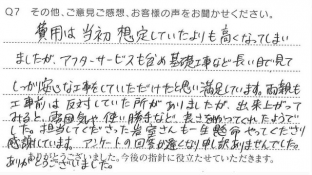 Q7 その他、ご意見ご感想、お客様の声をお聞かせください。
費用は当初想定していたよりも高くなってしまい
ましたが、アフターサービスも含め基礎工事など長い目で見て
しっかり安心な工事をしていただけたと思い満足しています。両親も
工事前は反対していた所がありましたが、出来上がって
みると、雰囲気や使い勝手など、良さをわかってくれたようで
した。担当してくださった岩室さんも一生懸命やってくださり
感謝しています。アンケートの回答が遅くなり申し訳ありませんでした。
ありがとうございました。今後の指針に役立たせていただきます。
ありがとうございました。